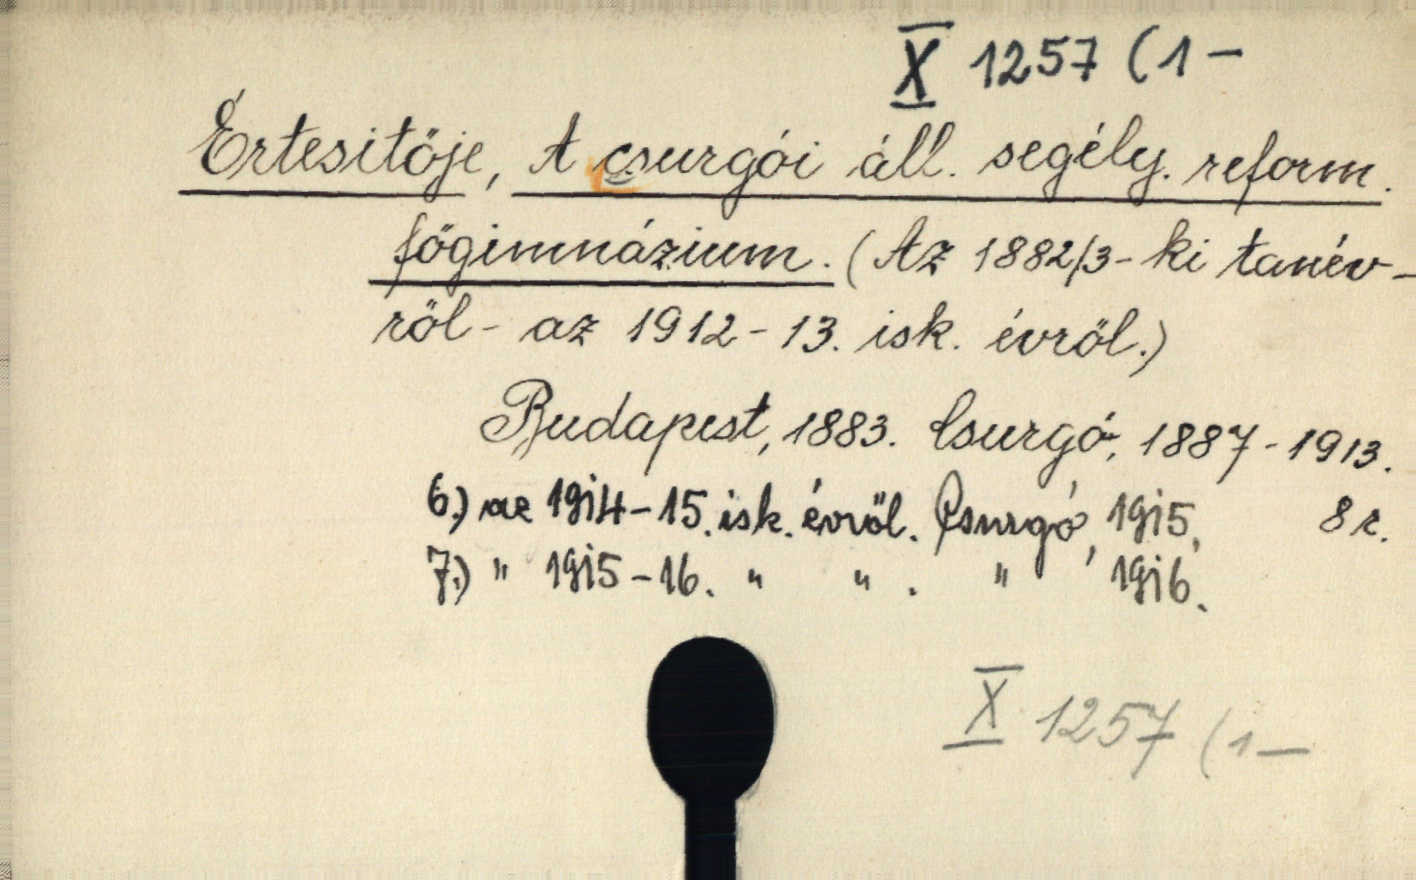 X 1257 (1-
Értesitője, A csurgói áll. segély. reform.
főgimnázium. (Az 1882/3-ki tanév-
ről - az 1912-13. isk. évről.)
Budapest, 1883. Csurgó, 1887-1913.
6.) az 1914-15. isk. évről. Csurgó, 1915. 8 r.
7.) " 1915-16. " " . " 1916.
X 1257 (1-